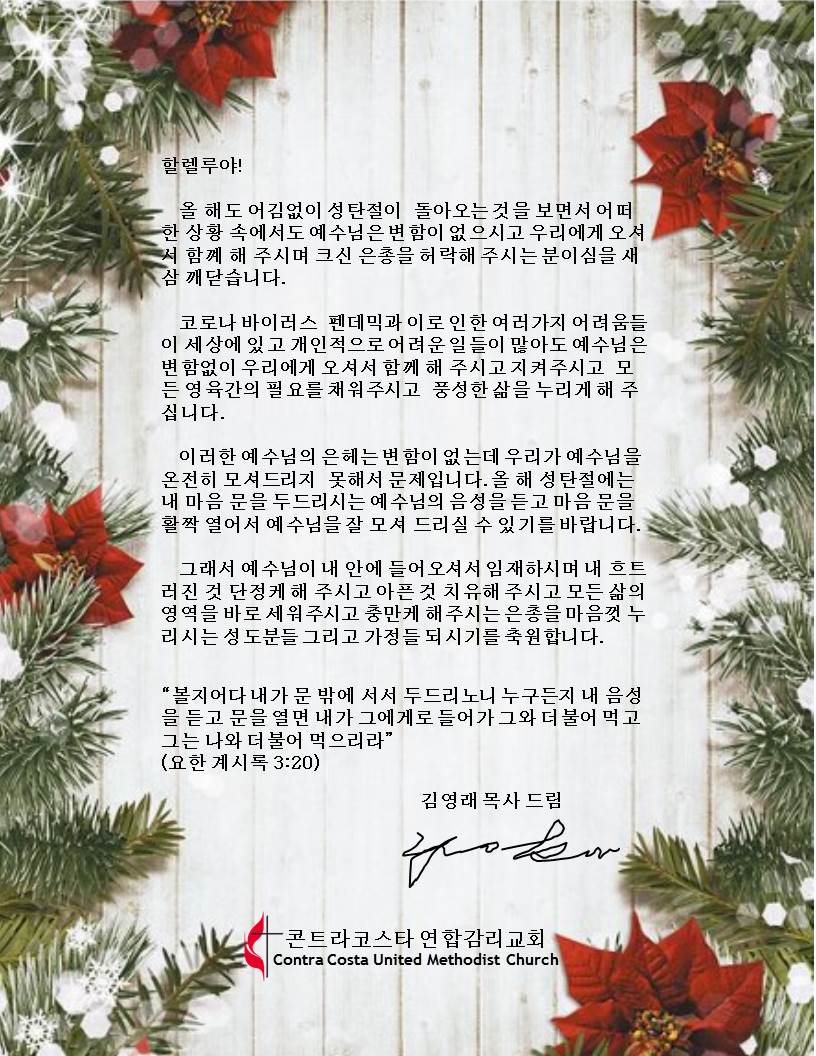 할렐루야!
올 해도 어김없이 성탄절이 돌아오는 것을 보면서 어떠
한 상황 속에서도 예수님은 변함이 없으시고 우리에게 오셔
서 함께 해 주시며 크신 은총을 허락해 주시는 분이심을 새
삼 깨닫습니다.
코로나 바이러스 펜데믹과 이로 인한 여러가지 어려움들
이 세상에 있고 개인적으로 어려운 일들이 많아도 예수님은
변함없이 우리에게 오셔서 함께 해 주시고 지켜주시고 모
든 영육간의 필요를 채워주시고 풍성한 삶을 누리게 해 주
십니다.
이러한 예수님의 은헤는 변함이 없는데 우리가 예수님을
온전히 모셔드리지 못해서 문제입니다. 올 해 성탄절에는
내 마음 문을 두드리시는 예수님의 음성을 듣고 마음 문을
활짝 열어서 예수님을 잘 모셔 드리실 수 있기를 바랍니다.
그래서 예수님이 내 안에 들어오셔서 임재하시며 내 흐트
러진 것 단정케 해 주시고 아픈 것 치유해 주시고 모든 삶의
영역을 바로 세워주시고 충만케 해주시는 은총을 마음껏 누
리시는 성도분들 그리고 가정들 되시기를 축원합니다.
“볼지어다 내가 문 밖에 서서 두드리노니 누구든지 내 음성
을 듣고 문을 열면 내가 그에게로 들어가 그와 더불어 먹고
그는 나와 더불어 먹으리라”
(요한 계시록 3:20)
김영래 목사 드림
콘트라코스타 연합감리교회
Contra Costa United Methodist Church